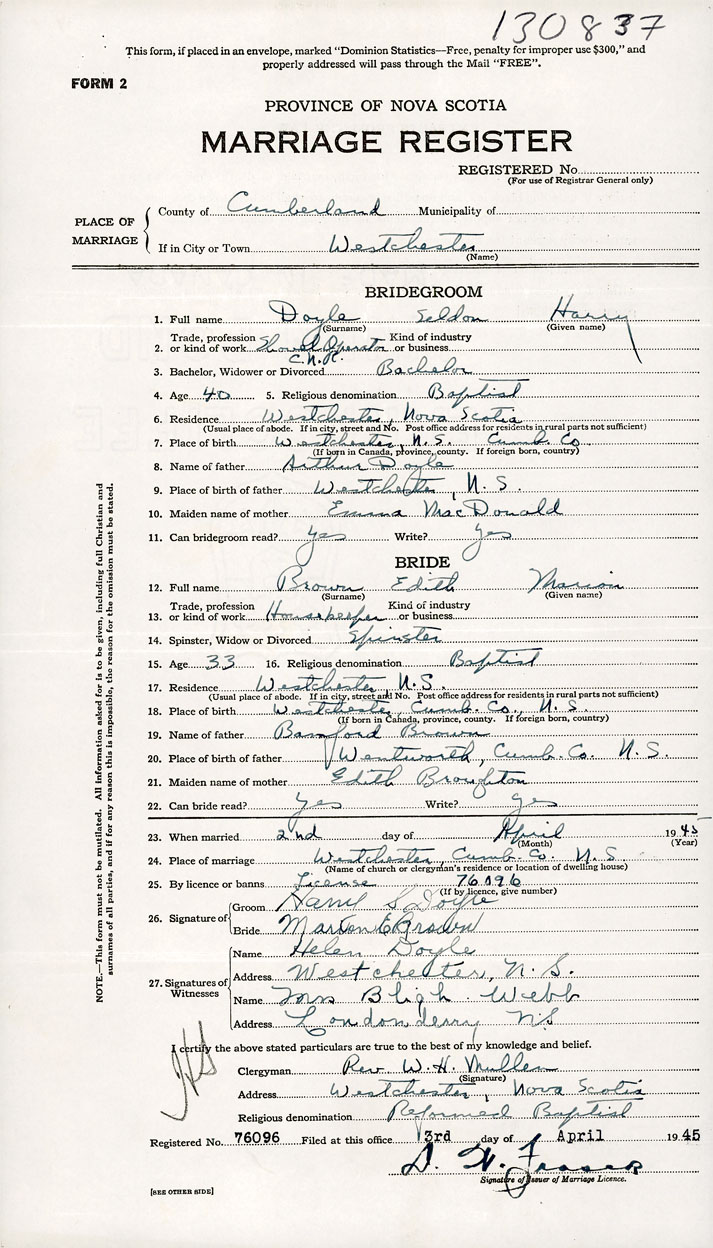 130837
This form, if placed in an envelope, marked "Dominion Statistics—Free, penalty for improper use $300," and
properly addressed will pass through the Mail "FREE".
FORM 2
PROVINCE OF NOVA SCOTIA
MARRIAGE REGISTER
REGISTERED No.
(For use of Registrar General only)
PLACE OF MARRIAGE
County of Cumberland Municipality of
If in City or Town Westchester
(Name)
BRIDEGROOM
1. Full name Doyle Seldon Harry
(Surname) (Given name)
Trade, profession Kind of industry
2. or kind of work Shovel Operator or business
C.N.R.
3. Bachelor, Widower or Divorced Bachelor
4. Age 40 5. Religious denomination Baptist
6. Residence Westchester, Nova Scotia
(Usual place of abode. If in city, street and No. Post office address for residents in rural parts not sufficient)
7. Place of birth Westchester, N.S. Cumb. Co.
(If born in Canada, province, county. If foreign born, country)
8. Name of father Arthur Doyle
9. Place of birth of father Westchester, N.S.
10. Maiden name of mother Emma MacDonald
11. Can bridegroom read? yes Write? yes
BRIDE
12. Full name Brown Edith Marion
(Surname) (Given name)
Trade, profession Kind of industry
13. or kind of work Housekeeper or business
14. Spinster, Widow or Divorced Spinster
15. Age 33 16. Religious denomination Baptist
17. Residence Westchester N.S.
(Usual place of abode. If in city, street and No. Post office address for residents in rural parts not sufficient)
18. Place of birth Westchester, Cumb. Co., N.S.
(If born in Canada, province, county. If foreign born, country)
19. Name of father Bamford Brown
20. Place of birth of father Wentworth, Cumb. Co. N.S.
21. Maiden name of mother Edith Broughton
22. Can bride read? yes Write? yes
23. When married 2nd day of April 1945
(Month) (Year)
24. Place of marriage Westchester, Cumb. Co. N.S.
(Name of church or clergyman's residence or location of dwelling house)
25. By licence or banns License 76096
(If by licence, give number)
26. Signature of
Groom Harry S. Doyle
Bride Marion E Brown
27. Signatures of Witnesses
Name Helen Doyle
Address Westchester, N.S.
Name Mrs Bligh Webb
Address Londonderry NS
I certify the above stated particulars are true to the best of my knowledge and belief.
Clergyman Rev. W. H. Mullen
(Signature)
Address Westchester, Nova Scotia
Religious denomination Reformed Baptist
Registered No. 76096 Filed at this office 3rd day of April 1945
D. W. Fraser
Signature of Issuer of Marriage Licence.
[SEE OTHER SIDE]
NOTE.—This form must not be mutilated. All information asked for is to be given, including full Christian and
surnames of all parties, and if for any reason this is impossible, the reason for the omission must be stated.